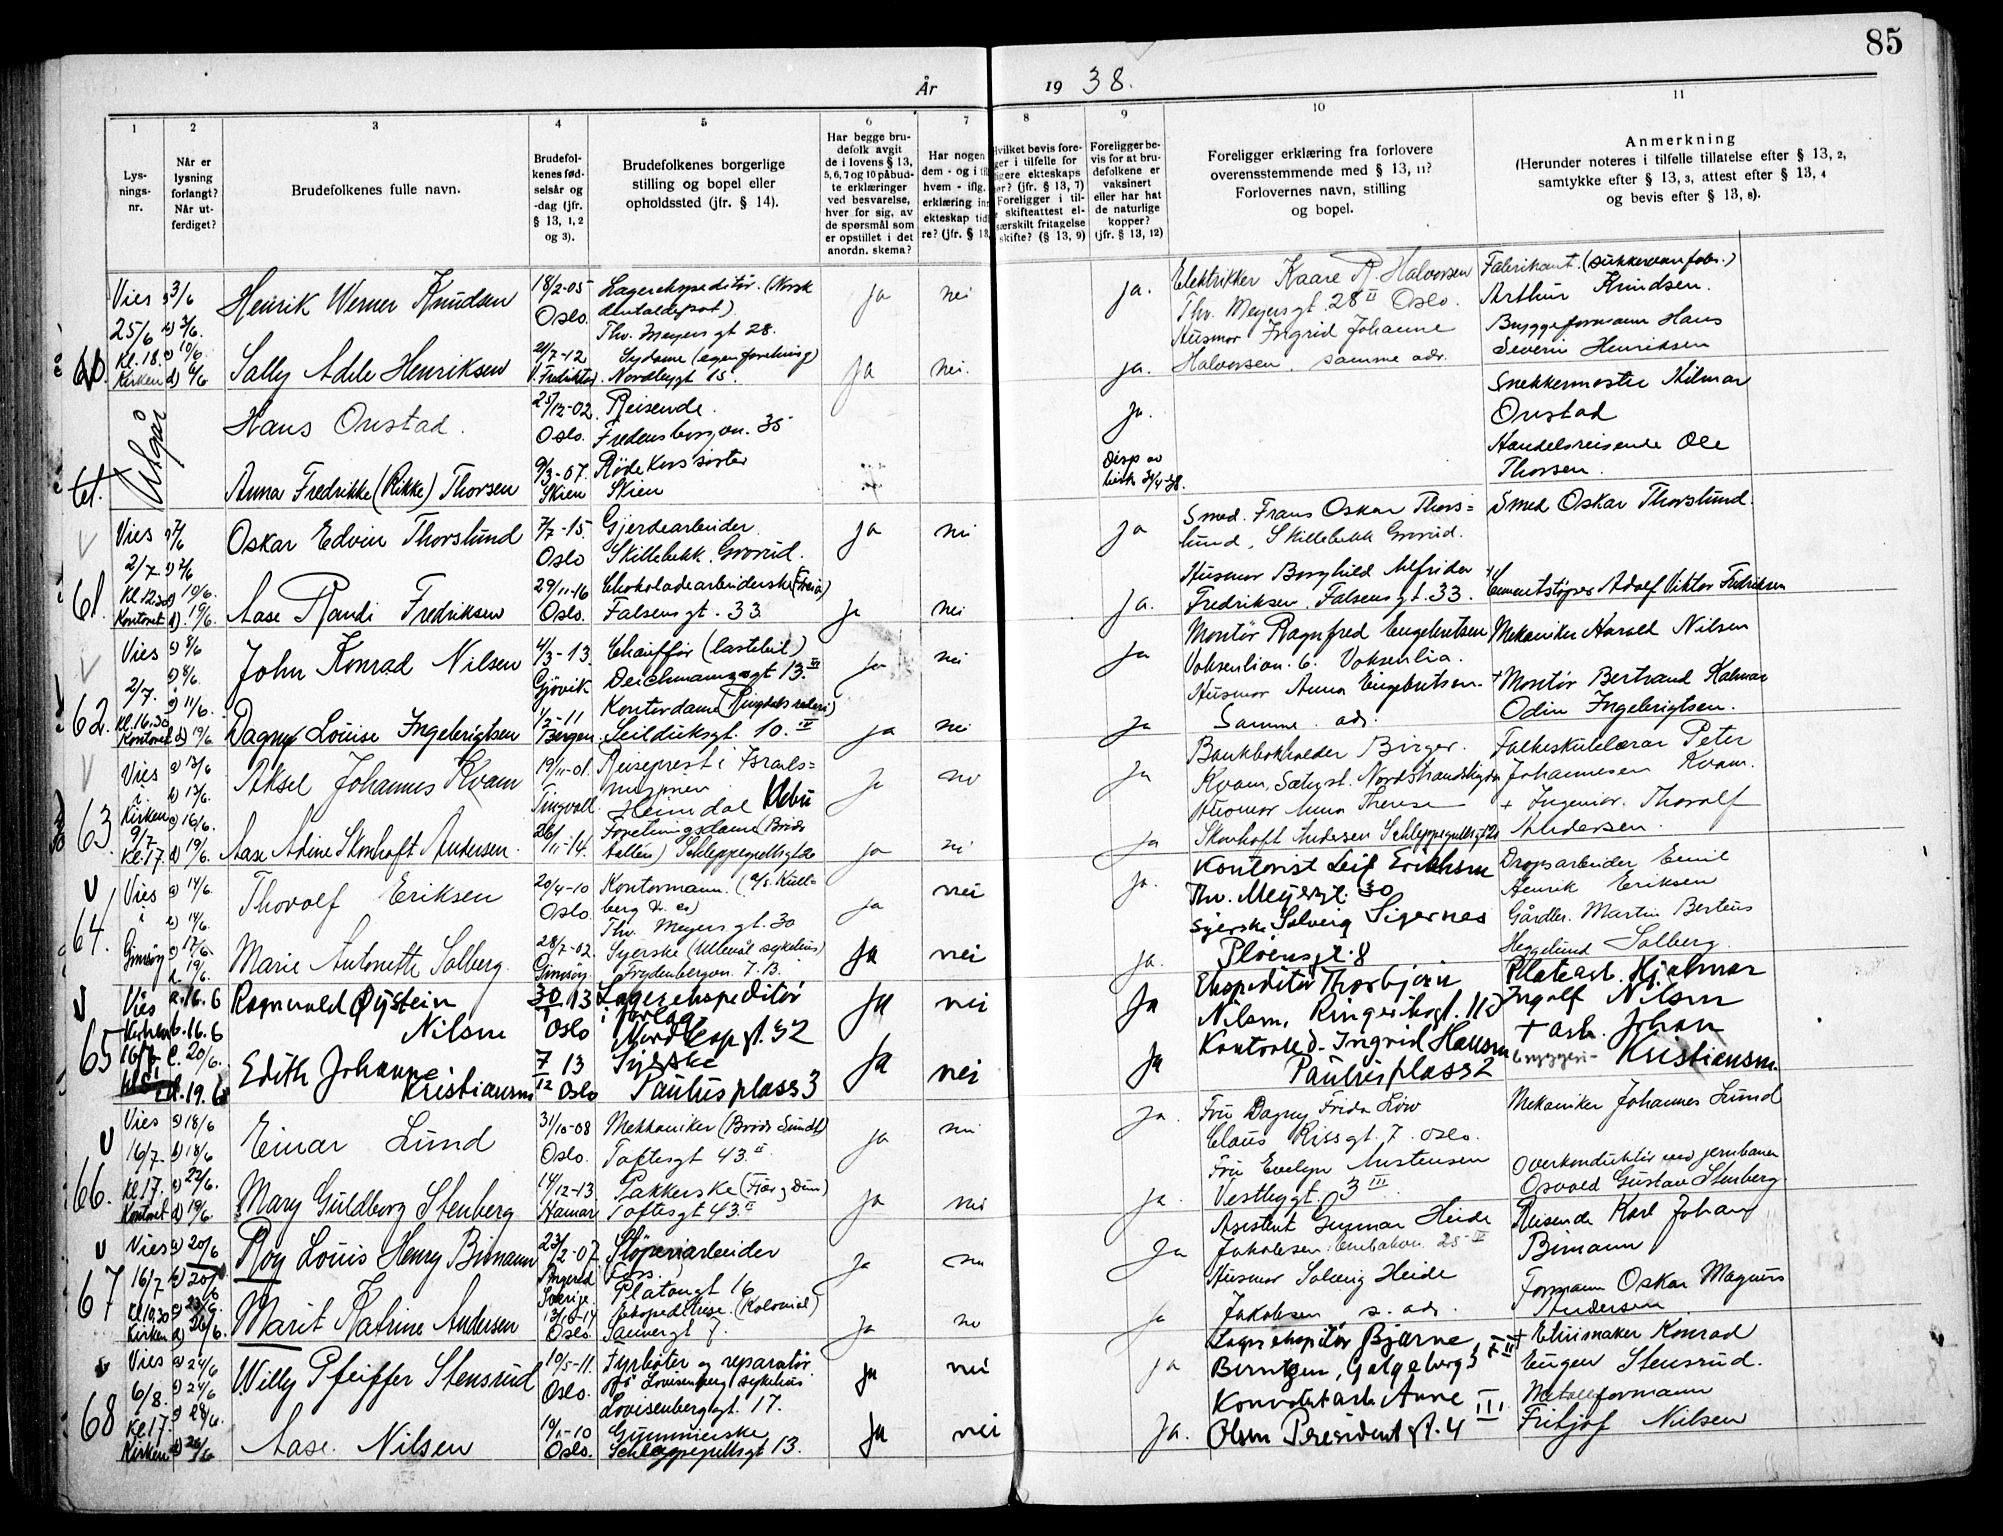 85
År 1938.
1 2 3 4 5 6 7 8 9 10 11
Lys-
nings-
nr.
Når er
lysning
forlangt?
Når ut-
ferdiget?
Brudefolkenes fulle navn.
Brudefol-
kenes fød-
selsår og
-dag (jfr.
§ 13, 1, 2
og 3).
Brudefolkenes borgerlige
stilling og bopel eller
opholdssted (jfr. § 14).
Har begge bru-
defolk avgit
de i lovens § 13,
5, 6, 7 og 10 påbud-
te erklæringer
ved besvarelse,
hver for sig, av
de spørsmål som
er opstillet i det
anordn. skema?
Har nogen
dem - og i til
hvem - iflg.
erklæring in
ekteskap tid
re? (jfr. § 13
Hvilket bevis fore-
ger i tilfelle for
ligere ekteskaps
ør? (jfr. § 13, 7)
Foreligger i til-
skifteattest el-
særskilt fritagelse
skifte? (§ 13, 9)
Foreligger be-
vis for at bru-
defolkene er
vaksinert
eller har hat
de naturlige
kopper?
(jfr. § 13, 12)
Foreligger erklæring fra forlovere
overensstemmende med § 13, 11?
Forlovernes navn, stilling
og bopel.
Anmerkning
(Herunder noteres i tilfelle tillatelse efter § 13, 2,
samtykke efter § 13, 3, attest efter § 13, 4
og bevis efter § 13, 8).
60.
Vies 25/6 Kl. 18. Kirken
a) 3/6 b) 3/6 c) 10/6 d) 6/6
Henrik Werner Knudsen
18/2-05 Oslo.
Lagerekspeditør. (Norsk
dentaldepot)
Thv. Meyers gt 28.
ja nei ja.
Elektrikker Kaare R. Halvorsen
Thv. Meyersgt. 28 II Oslo.
Husmor Ingrid Johanne
Halvorsen. samme adr.
Fabrikant. (sukkervarefabr.)
Arthur Knudsen.
Sally Adele Henriksen
21/7-12 Fredrikstad
Sydame (egen forretning)
Nordbygt 15.
ja nei. ja.
Bryggeformann Hans
Severin Henriksen
61.
Utgår
Hans Onstad.
25/12-02. Oslo.
Reisende.
Fredensborgvn. 35
ja.
Snekkermester Hilmar
Onstad
Anna Fredrikke (Rikke) Thorsen
9/3-07. Skien
Røde Kors søster
Skien
Disp av
30/4-38.
Handelsreisende Ole
Thorsen.
61.
Vies 2/7 Kl 12.30 Kontoret
a) 7/6 b) 7/6 c) 10/6. d) 19/6.
Oskar Edvin Thorslund
7/7-15. Oslo
Gjerdearbeider
Skillebekk. Grorud.
ja nei ja
Smed. Frans Oskar Thors=
lund, Skillebekk Grorud.
Smed Oskar Thorslund.
Aase Randi Fredriksen
29/11-16 Oslo.
Chokoladearbeiderske (Freia)
Falsens gt. 33
ja nei ja.
Husmor Borghild Alfrida
Fredriksen. Falsens gt. 33.
+ Cementstøper Adolf Viktor Fredriksen
62.
Vies 2/7. Kl. 16.30 Kontoret
a) 8/6 b) 8/6. c) 11/6. d) 19/6
John Konrad Nilsen
4/3-13. Gjøvik
Chauffør (lastebil)
Deichmannsgt 13. III
ja nei ja
Montør Ragnfred Engebretsen
Voksenlian. 6. Voksenlia.
Mekaniker Harald Nilsen
Dagny Louise Ingebrigtsen
1/2-11 Bergen.
Kontordame (Ringdals rederi)
Seilduksgt. 10. IV
ja nei ja
Husmor Anna Engebretsen.
Samme adr.
+ Montør Bertrand Kalmar
Odin Ingebrigtsen.
63.
Vies i Kirken 9/7. Kl. 17.
a) 13/6 b) 13/6. c) 16/6. d) 19/6.
Aksel Johannes Kvam
19/11-01. Tingvoll
Reiseprest i Israels=
misjonen
Heimdal Klebu
ja nei ja
Bankbokholder Birger.
Kvam, Sæterst. Nordstrandshøgda
Folkeskolelærar Peter
Johannesen Kvam.
Aase Adine Skonhoft Andersen.
26/11-14.
Forretningsdame (Brødr
Hallén) Schleppegrellsgt 20
ja nei ja
Husmor Anna Therese
Skonhoft Andersen Schleppegrellsgt 20
+ Ingeniør. Thoralf
Andersen.
64.
Vies i Gimsøy
a) 14/6. b) 14/6. c) 17/6. d. 19/6.
Thoralf Eriksen
20/4-10 Oslo.
Kontormann. (A/S. Kull-
berg & co)
Thv. Meyers gt. 30
ja nei ja.
Kontorist Leif Eriksen
Thv. Meyersgt. 30
Dropsarbeider Emil
Henrik Eriksen
Marie Antonette Solberg.
28/7-02. Gimsøy.
Syerske (Ullevål sykehus)
Frydenbergvn. 7. B.
ja nei ja.
Syerske Solveig Sigernes
Pløensgt. 8
Gårdbr. Martin Berteus
Heggelund Solberg.
65
Vies Kirken 16/7
a. 16. 6 b. 16. 6 c. 20/6. d. 19. 6
Ragnvald Øystein
Nilsen
30/1 13 Oslo
Lagerekspeditør
i forlag
Nordkapgt. 32
ja nei ja
Ekspeditør Thorbjørn
Nilsen, Ringeriksgt. 11 d
Platearb. Hjalmar
Ingolf Nilsen
Edith Johanne
Kristiansen
7/12 13 Oslo
Syerske
Paulus plass 3
ja nei ja
Kontord. Ingrid Hansen
Paulus plass 2
+ arb. Johan
Kristiansen.
66.
Vies 16/7. Kl 17. Kontoret
a) 18/6 b) 18/6 c) 22/6. d) 19/6
Einar Lund
31/10-08 Oslo.
Mekkaniker (Brødr Sundt)
Toftesgt 43. II
ja nei ja.
Fru Dagny Frida Löw
Claus Riisgt. 7. Oslo.
Mekaniker Johannes Lund
Mary Guldborg Stenberg
14/12-13 Hamar
Pakkerske (Fjær & Dun)
Toftesgt 43. II
ja nei ja.
Fru Evelyn Mortensen
Vestbygt. 3 III
Overkonduktør ved jernbanen
Osvald Gustav Stenberg
67
Vies 16/7 Kl. 10,30 Kirken
a) 20/6 b) 20/6 c) 23/6. d) 26/6.
Roy Louis Henry Bimann
23/2-07. Sverige
Støperiarbeider
Foss
Platougt 16
ja nei ja
Asistent Gunnar Heide
Jakobsen. 25 II
Reisende Karl Johan
Bimann
Marit Katrine Andersen
13/10-14 Oslo.
Ekspeditrise. (Kolonial)
Sannergt 7.
ja nei ja
Husmor Solveig Heide
Jakobsen, s. adr.
Formann Oskar Magnus
Andersen
68
Vies 6/8. Kl 17. Kirken
a) 24/6 b) 24/6 c) 28/6. d) 26/6
Willy Pfeiffer Stensrud
10/5-11. Oslo.
Fyrbøter og reparatør
på Lovisenberg sykehus
Lovisenberggt. 17.
ja nei ja
Lagerekspeditør Bjarne
Berntzen, Galgeberg 3 III
+ Etuimaker Konrad
Eugen Stensrud.
Aase Nilsen
19/1-10 Oslo.
Gummierske
Schleppegrellsgt 13.
ja nei ja.
Kontorist Anne
Olsen Presidentgt. 4 III
Metallformann
Fritjof Nilsen